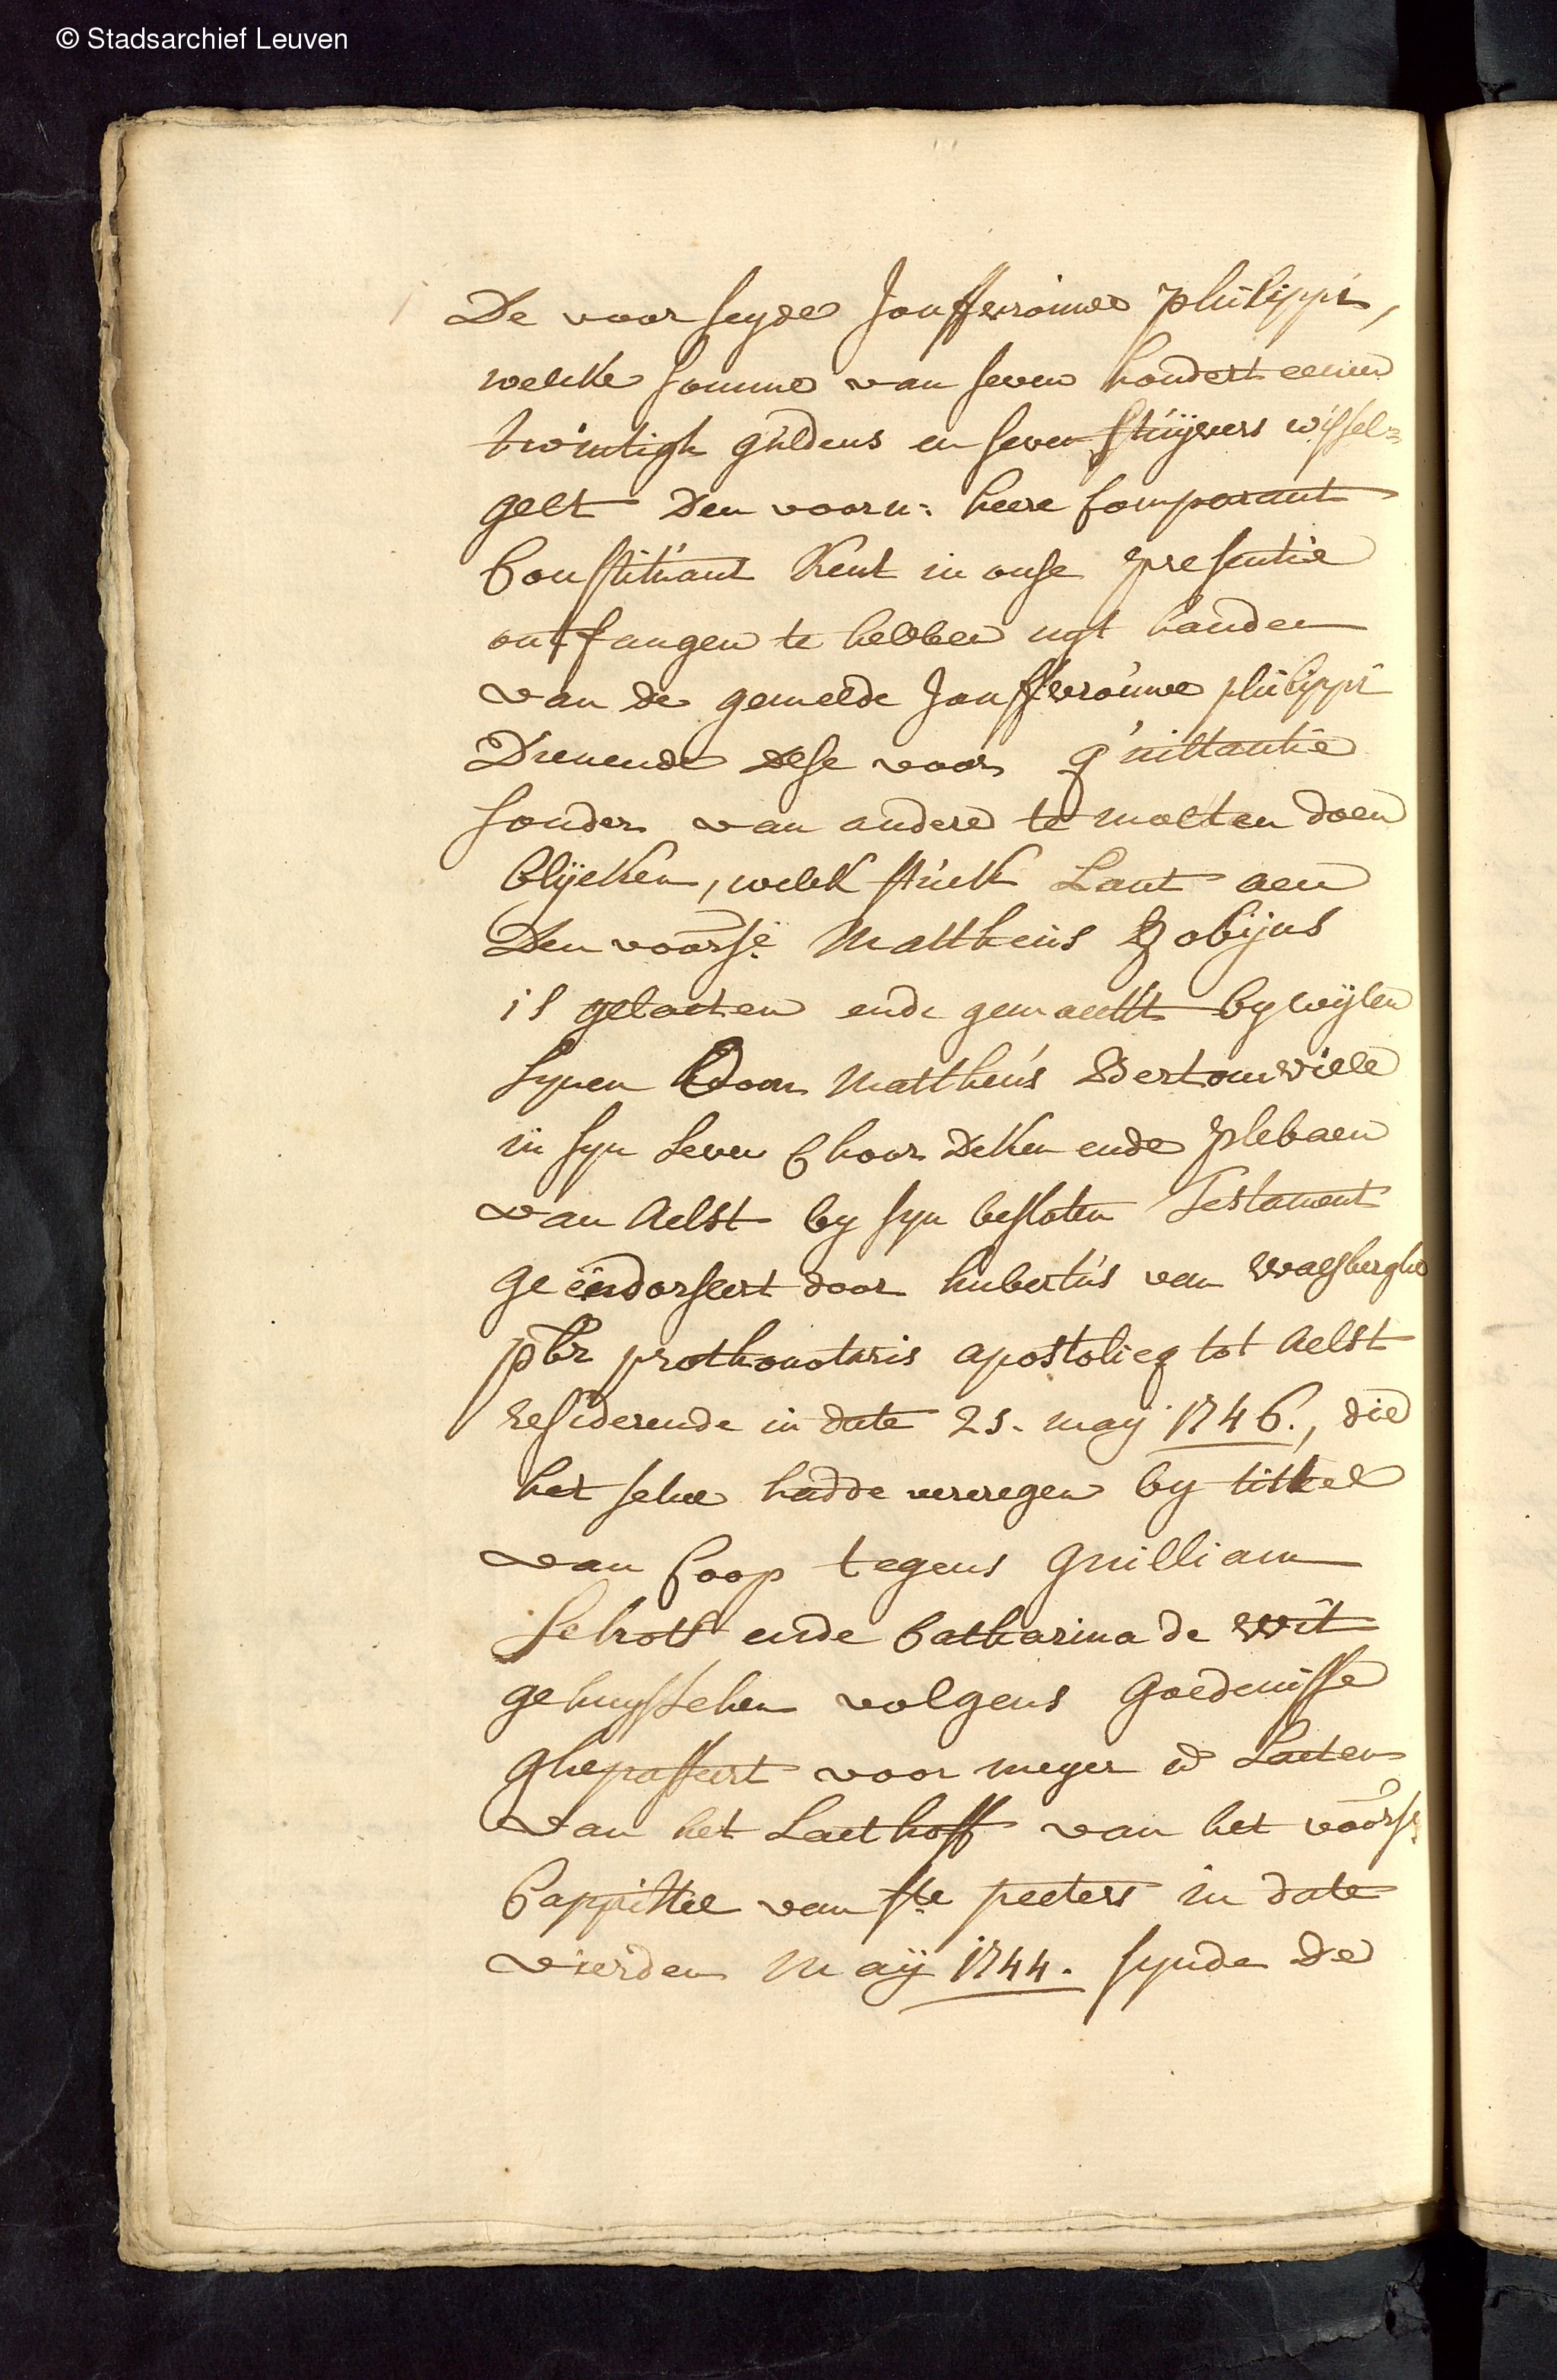 © Stadsarchief Leuven
De voorseyde Jouffvrouwe philippi,
welcke somme van seven hondert eenen
twintigh guldens en seven stuyvers wissel=
gelt den voorn: heere Comparant
Constituant kent in onse presentie
ontfangen te hebben uyt handen
van de gemelde Jouffvrouwe philippi
Dienende dese voor quittantie
sonder van andere te moeten doen
blijcken, welck stuck Lant aen
Den voorse. Mattheus Robijns
is gelaeten ende gemaeckt by wijlen
synen Oom Mattheus Bertomviele
in syn Leven Choor Deken ende plebaen
van Aelst by syn besloten Testament
geëndorseert door hubertus van Waesberghe
pbr prothonotaris apostolicq tot Aelst
residerende in date 25. may 1746., die
het selve hadde vercregen by tittel
van Coop tegens Guilliam
ende Catharina de Wit
gehuysschen volgens Goedenisse
ghepasseert voor meyer en Laeten
van het Laethoff van het voorse
Cappittel van ste peeters in date
vierden Maÿ 1744. synde De